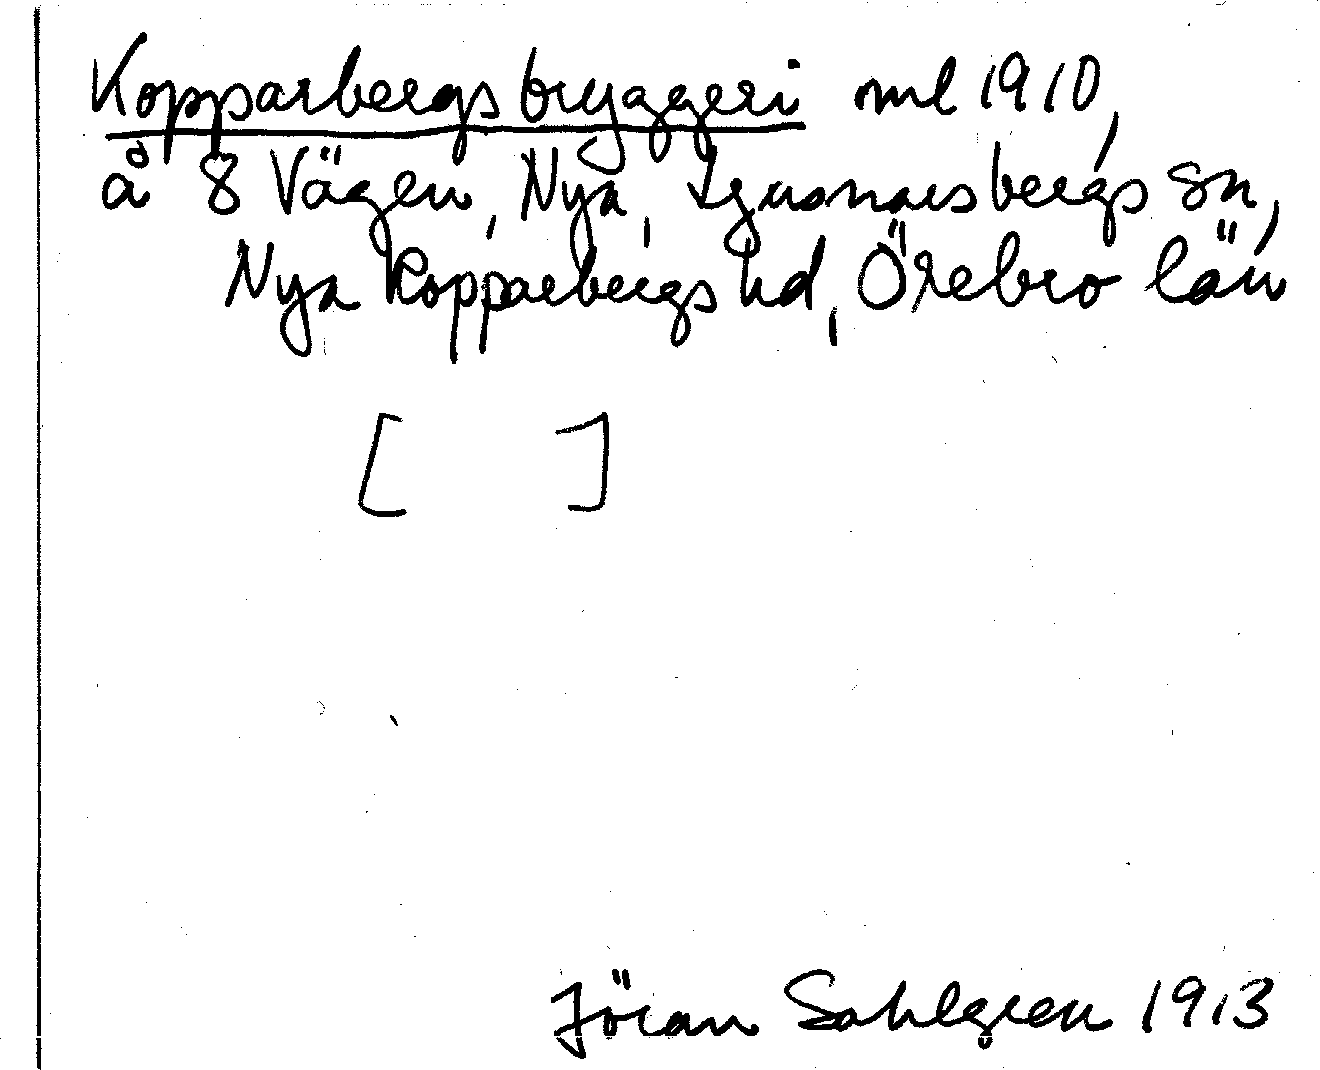 Kopparbergsbryggeri ml 1910,
å 8 Vägen, Nya, Ljusnarsbergs sn,
Nya Kopparbergs hd, Örebro län
[ ]
Jöran Sahlgren 1913